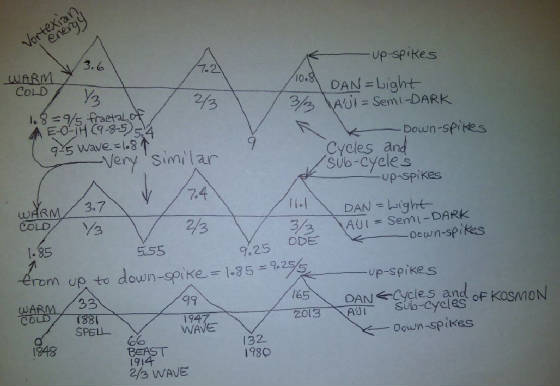 Vortexian
energy
up-spikes
3.6
7.2
10.8
WARM
COLD
DAN = Light
AUI = Semi-DARK
1/3
2/3
3/3
1.8 = 9/5 fractal of
E-O-IH (9-8-5)
5.4
9
Down-spikes
9-5 wave = 1.8
Very similar
Cycles and
sub-cycles
up-spikes
3.7
7.4
11.1
WARM
COLD
DAN = Light
AUI = Semi-DARK
1/3
2/3
3/3
ODE
1.85
5.55
9.25
Down-spikes
from up to down-spike = 1.85 = 9.25/5
up-spikes
33
99
165
WARM
COLD
DAN
AUI
Cycles and
sub-cycles
of KOSMON
1881
SPELL
1947
WAVE
2013
Down-spikes
0
1848
66
BEAST
1914
2/3 WAVE
132
1980